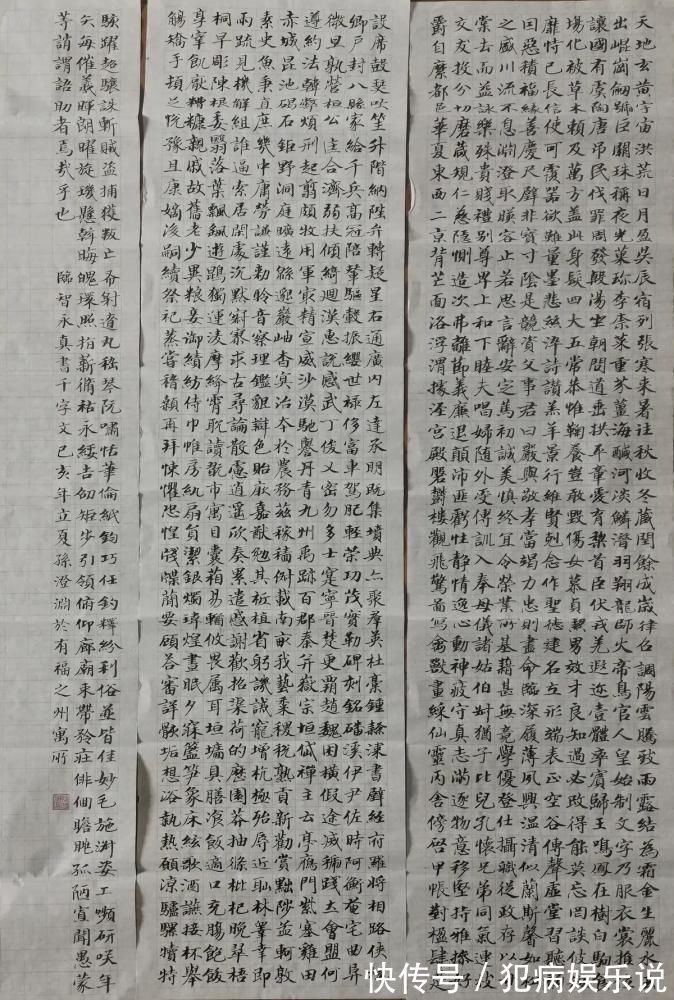 天地玄黃宇宙洪荒日月盈昃辰宿列張寒来暑往秋收冬蔵閏餘成歲律召調陽雲騰致雨露結為霜金生麗水玉
出崐崗劒號巨闕珠稱夜光菓珍李柰菜重芥薑海醎河淡鱗潛羽翔龍師火帝鳥官人皇始制文字乃服衣裳推位
讓國有虞陶唐弔民伐罪周發殷湯坐朝問道垂拱平章愛育黎首臣伏戎羌遐迩壹體率賓歸王鳴鳳在樹白駒食
場化被草木頼及萬方盖此身髮四大五常恭惟鞠養豈敢毀傷女慕貞絜男效才良知過必改得能莫忘罔談彼短
靡恃己長信使可覆器欲難量墨悲絲淬詩讃羔羊景行維賢剋念作聖德建名立形端表正空谷傳聲虛堂習聽禍
因惡積福緣善慶尺璧非寶寸陰是競資父事君曰嚴與敬孝當竭力忠則盡命臨深履薄夙興溫清似蘭斯馨如松
之盛川流不息淵澄取暎容止若思言辭安定篤初誠美慎終宜令榮業所基藉甚無竟學優登仕攝職從政存以甘
棠去而益詠樂殊貴賤禮別尊卑上和下睦夫唱婦隨外受傅訓入奉母儀諸姑伯叔猶子比兒孔懷兄弟同氣連枝
交友投分切磨箴規仁慈隱惻造次弗離節義廉退顛沛匪虧性静情逸心動神疲守真志滿逐物意移堅持雅操好
爵自縻都邑華夏東西二京背芒面洛浮渭據涇宮殿磐鬱樓觀飛驚啚寫禽獸畫綵仙靈丙舍傍啓甲帳對楹肆筵
設席鼓瑟吹笙升階納陛弁轉疑星右通廣內左達承明既集墳典亦聚群英杜稾鍾隸漆書壁經府羅將相路俠槐
卿户封八縣家給千兵高冠陪輦驅轂振纓世祿侈富車駕肥輕策功茂實勒碑刻銘磻溪伊尹佐時阿衡奄宅曲阜
微旦孰營桓公匡合濟弱扶傾綺迴漢惠說感武丁俊乂密勿多士寔寧晉楚更霸趙魏困橫假途滅虢踐土會盟何
遵約法韓弊煩刑起翦頗牧用軍最精宣威沙漠馳譽丹青九州禹跡百郡秦并嶽宗恒岱禪主云亭鴈門紫塞雞田
赤城昆池碣石鉅野洞庭曠遠緜邈巖岫杳冥治本於農務茲稼穡俶載南畝我藝黍稷稅熟貢新勸賞黜陟孟軻敦
素史魚秉直庶幾中庸勞謙謹勑聆音察理鑑貌辯色貽厥嘉猷勉其祗植省躬譏誡寵增抗極殆辱近恥林睾幸即
兩疏見機解組誰逼索居閑處沉默寂寥求古尋論散慮逍遥欣奏累遣慼謝歡招渠荷的歷園莽抽條枇杷晚翠梧
桐早彫陳根委翳落葉飄颻遊鵾獨運凌摩絳霄耽讀翫市寓目囊箱易輶攸畏属耳垣墻具膳飡飯適口充腸飽飫
享宰飢厭糟糠親戚故舊老少異粮妾御績紡侍巾帷房紈扇員潔銀燭煒煌晝眠夕寐藍笋象床絃歌酒讌接杯舉
觴矯手頓足悅豫且康嫡後嗣續祭祀蒸嘗稽顙再拜悚懼恐惶牋牒簡要顧答審詳骸垢想浴執熱願涼驢騾犢特
駭躍超驤誅斬賊盗捕獲叛亡布射遼丸嵇琴阮嘯恬筆倫紙鈞巧任釣釋紛利俗並皆佳妙毛施淑姿工嚬妍咲年
矢每催羲暉朗曜旋璣懸斡晦魄環照指薪脩祜永綏吉劭矩步引領俯仰廊廟束帶矜莊俳佪瞻眺孤陋寡聞愚蒙
等誚謂語助者焉哉乎也 臨智永真書千字文己亥年立夏孫澄淵於有福之州寓所
快传号 / 犯病娱乐说